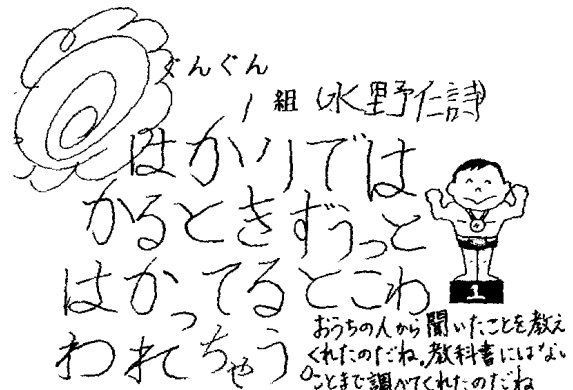 ぐんぐん
1組 水野仁詩
はかりでは
かるときずうっと
はかってるとこわ
われちゃう。
1
おうちの人から聞いたことを教え
くれたのだね。教科書にはない
ことまで調べてくれたのだね